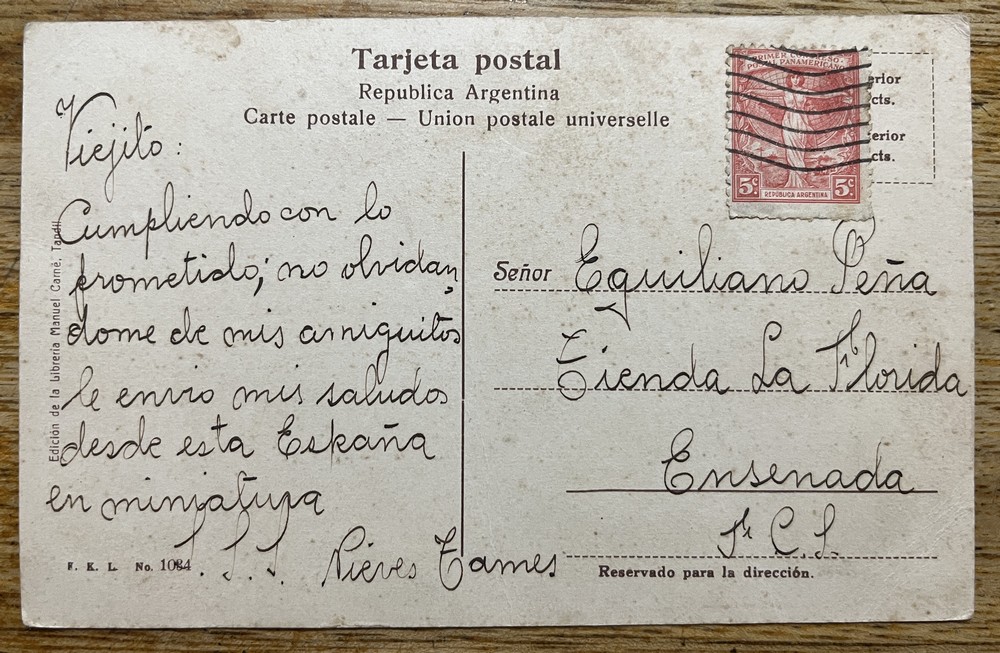 Tarjeta postal
Republica Argentina
Carte postale — Union postale universelle
PRIMER CONGRESO
POSTAL PANAMERICANO
5c 5c
REPÚBLICA ARGENTINA
erior
cts.
erior
cts.
Viejito:
Cumpliendo con lo
prometido; no olvidan
dome de mis amiguitos
le envio mis saludos
desde esta España
en miniatura
S. S. S. Nieves Tames
Edición de la Librería Manuel Carné, Tandil
F. K. L. No. 1084
Señor Equiliano Peña
Tienda La Florida
Ensenada
F. C. S.
Reservado para la dirección.